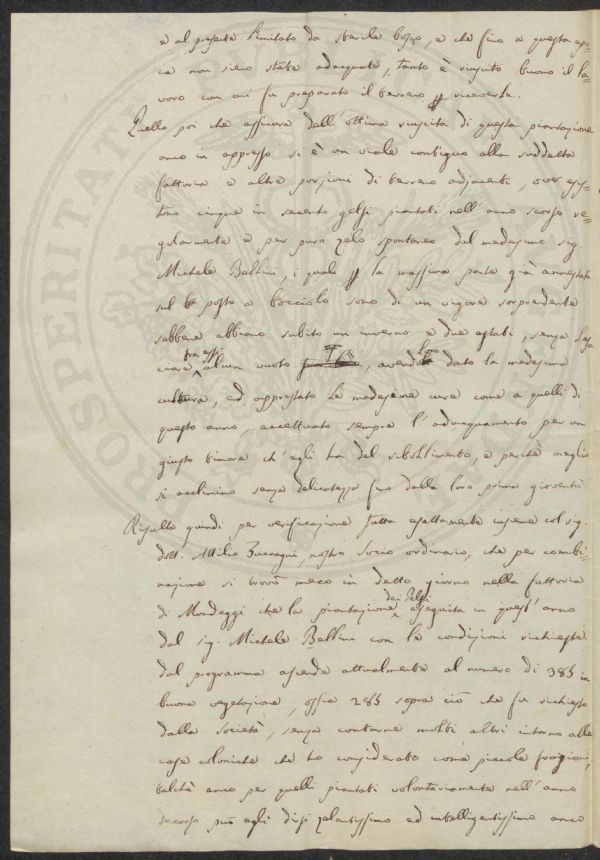 e al presente limitato da sterile bosco, e che fino a questa epo=
ca non siero state adacquate, tanto è riuscito buono il la=
voro con cui fu preparato il terreno
Quello poi che assicura dell'ottima riuscita di questa piantazione
anco in appresso si è un viale contiguo alla suddetta
fattoria e altre porzioni di terreno adjacenti, ove esis=
tono cinque in secento gelsi piantati nell'anno scorso re=
golarmente e per puro zelo spontaneo dal medesimo sig.
Michele Bellini, i quali la massima parte già annestati
sul posto a bocciolo sono di un vigore sorprendente
sebbene abbiano subito un inverno e due estati, senza las=
ciare tra essi alcun vuoto, avendo dato la medesima
cultura, ed apprestato le medesime cure come a quelli di
questo anno, eccettuato sempre l'adacquamento per un
giusto timore ch'egli ha del ribollimento, e perchè meglio
si acclimino senza delicatezza fino dalla loro prima gioventù
Risulta quindi per verificazione fatta esattamente insieme col sig.
dott. Attilio Zuccagni, nostro socio ordinario, che per combi=
nazione si trovò meco in detto giorno nella fattoria
di Mondeggi che la piantazione dei Gelsi eseguita in quest'anno
dal sig. Michele Bellini con le condizioni richieste
dal programma ascende attualmente al numero di 385 in
buona vegetazione, ossia 285 sopra ciò che fu richiesto
dalla Società, senza contarne molti altri intorno alle
case coloniche che ho considerato come piccole frazioni,
talchè anco per quelli piantati volontariamente nell'anno
decorso può egli dirsi zelantissimo ed intelligentissimo anco
PROSPERITATI